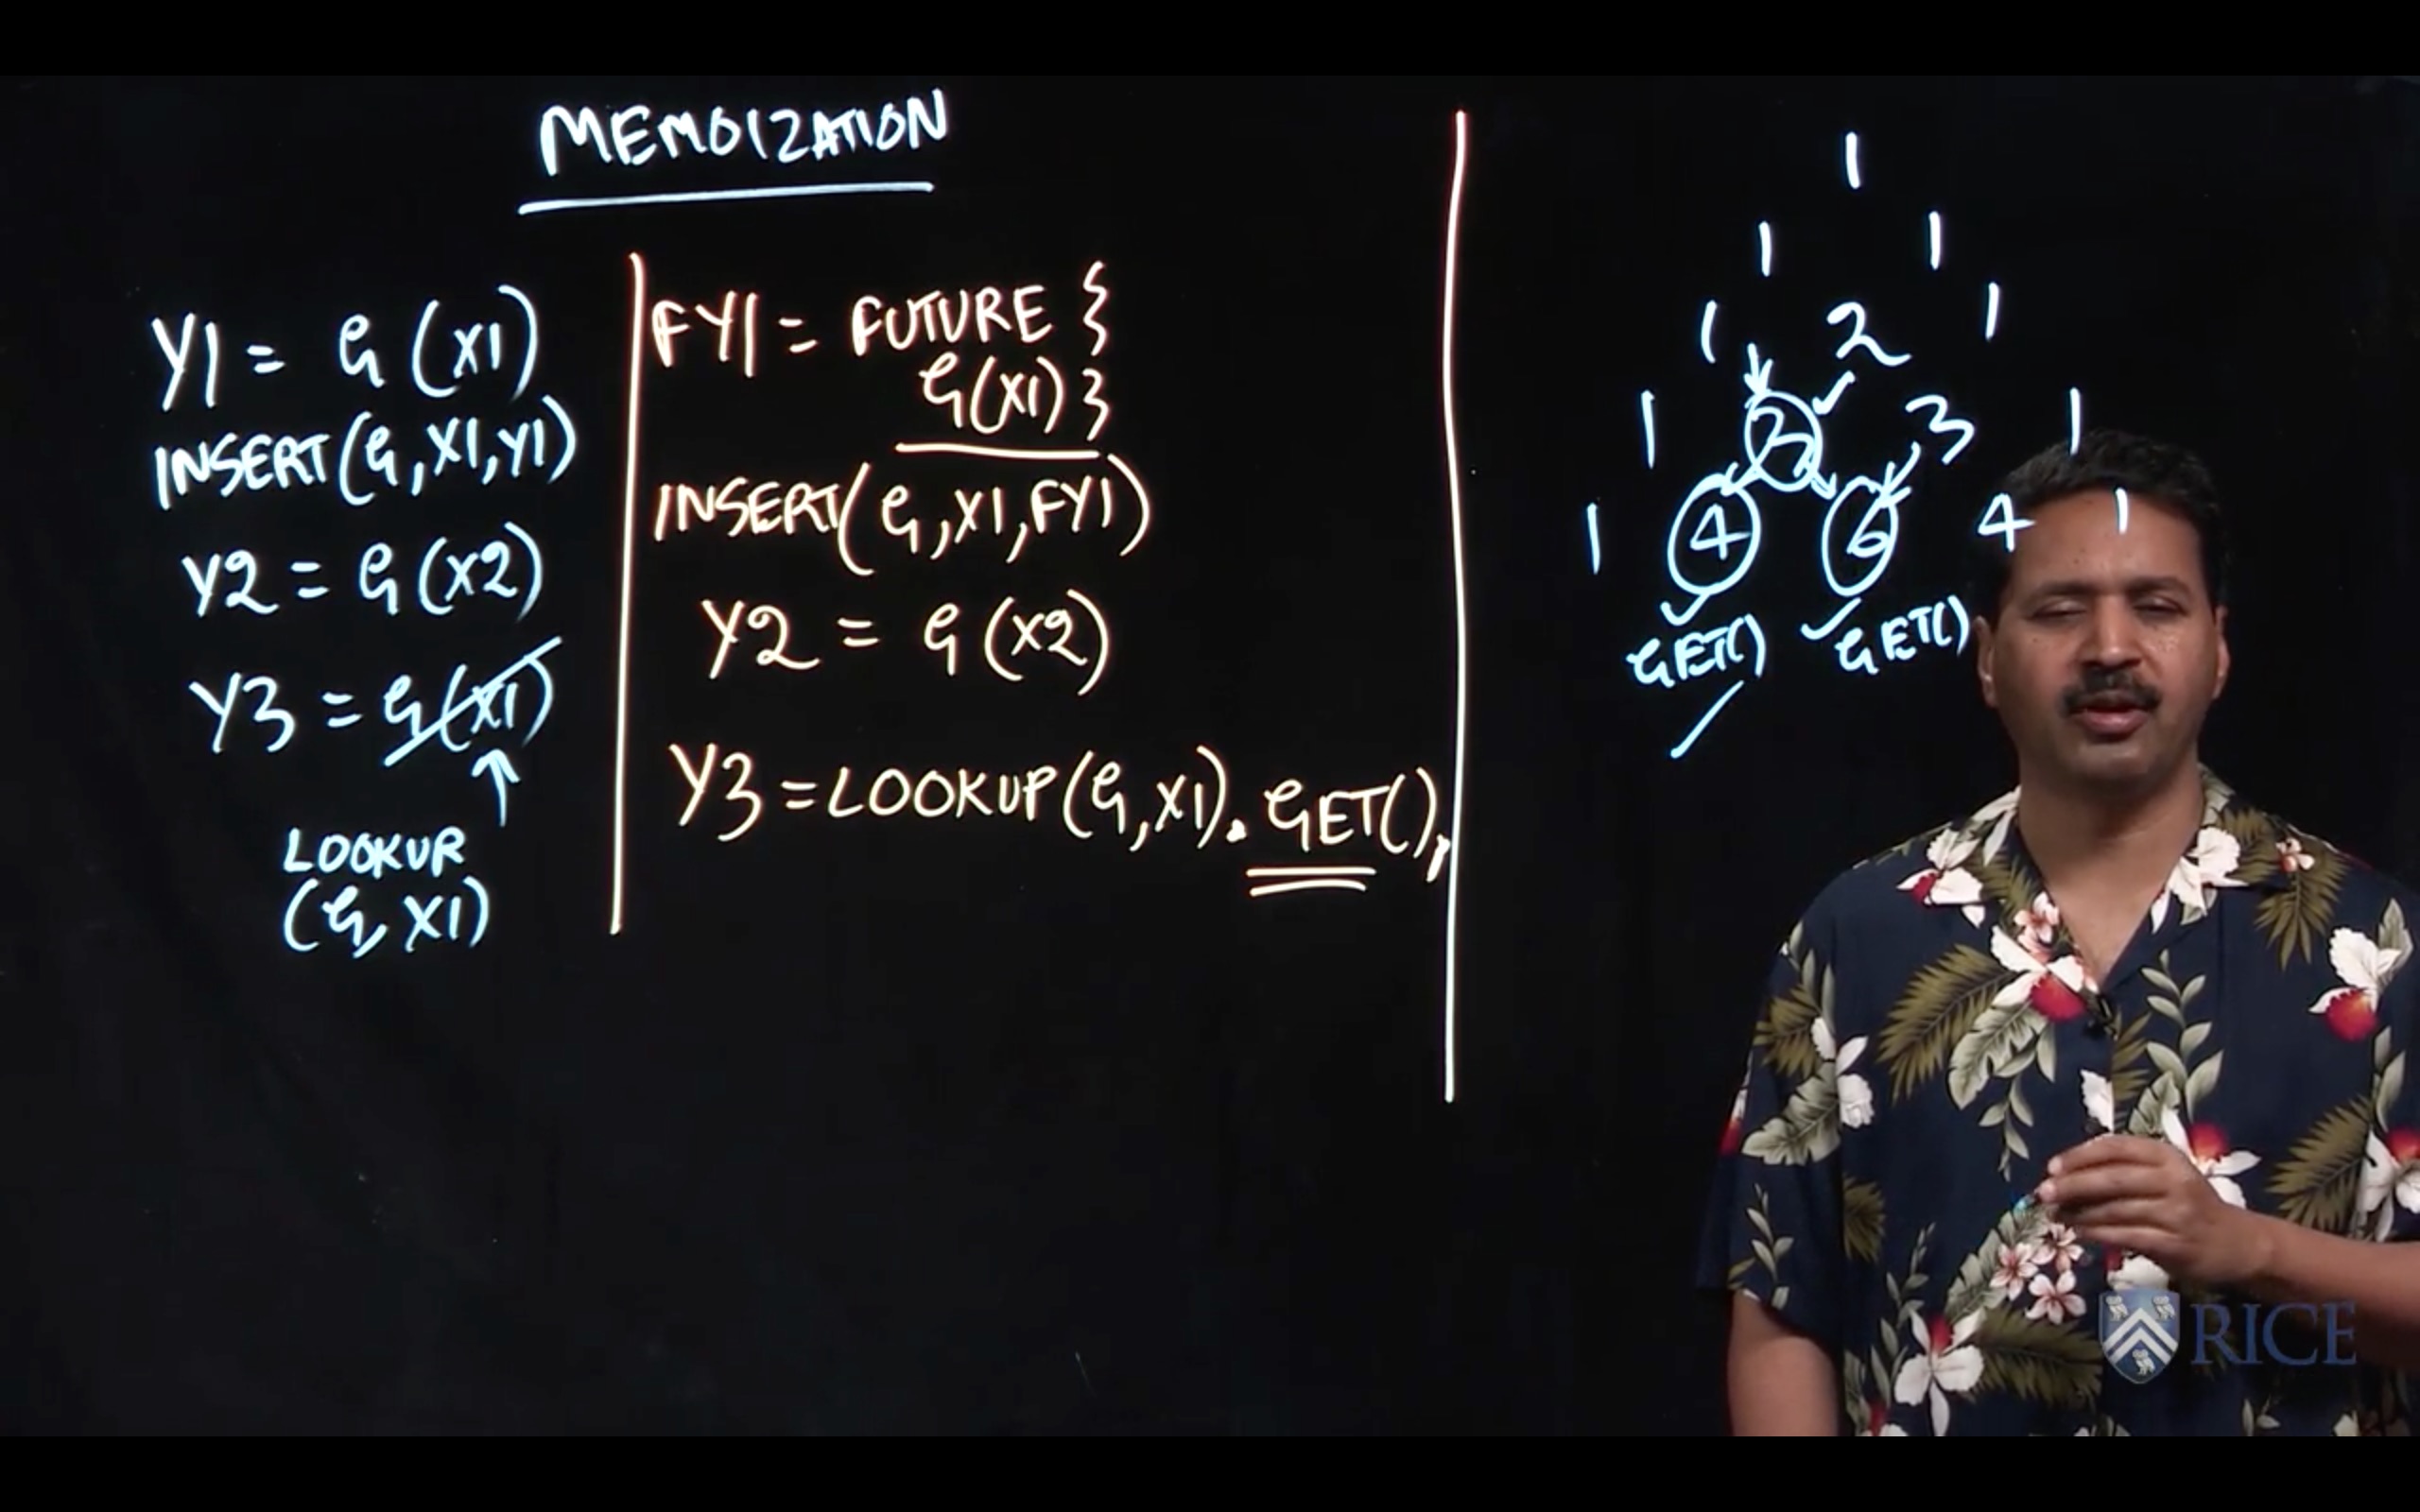 MEMOIZATION
Y1 = G(X1)
INSERT(G,X1,Y1)
Y2 = G(X2)
Y3 = G(X1)
LOOKUP
(G, X1)
FY1 = FUTURE {
G(X1) }
INSERT(G,X1,FY1)
Y2 = G(X2)
Y3 = LOOKUP(G,X1). GET();
1
1 1
1 2 1
1 3 3 1
1 4 6 4 1
GET() GET()
RICE